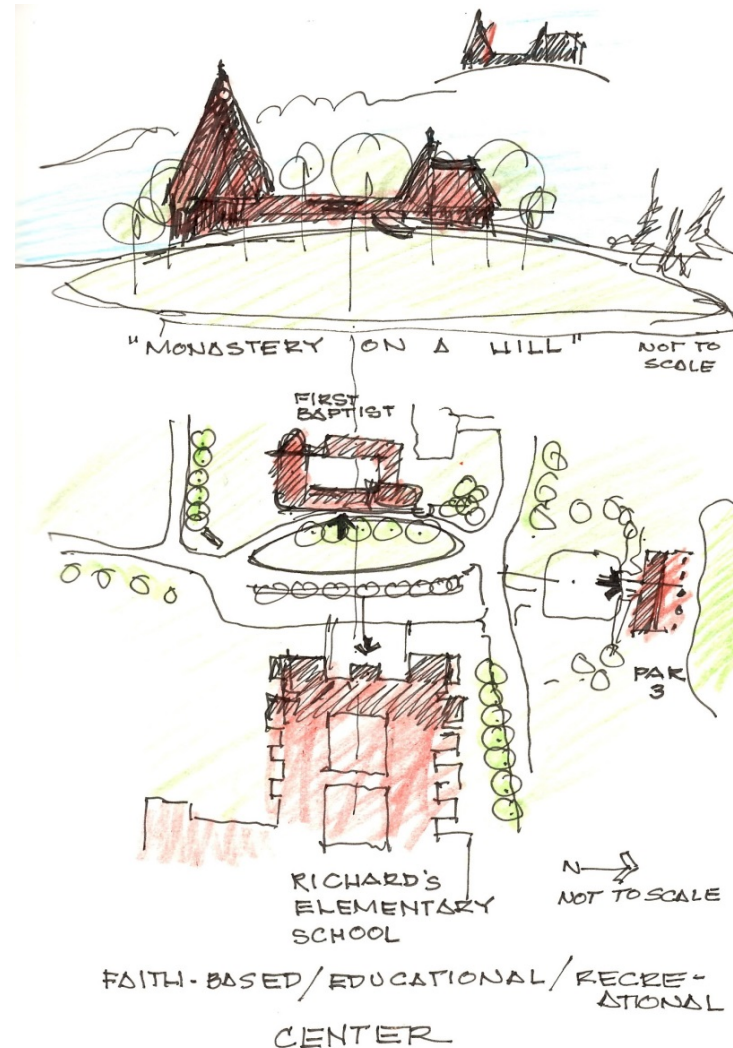 "MONASTERY ON A HILL"
NOT TO
SCALE
FIRST
BAPTIST
PAR
3
RICHARD'S
ELEMENTARY
SCHOOL
N
NOT TO SCALE
FAITH-BASED/EDUCATIONAL/RECRE-
ATIONAL
CENTER